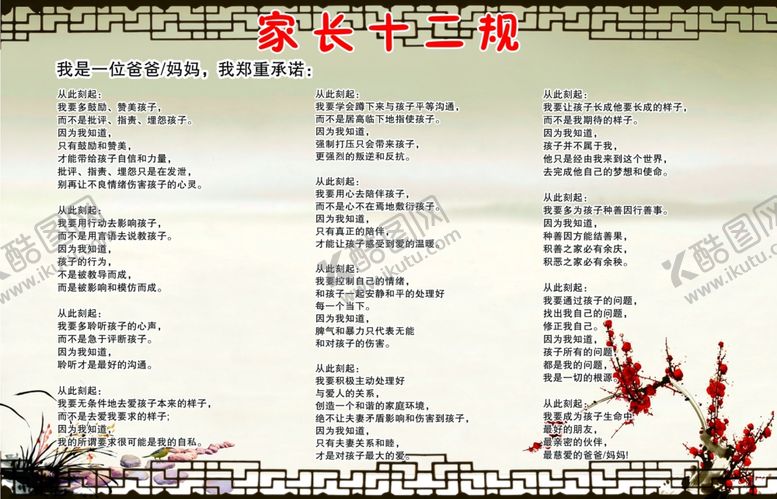 家长十二规
我是一位爸爸/妈妈，我郑重承诺：
从此刻起：
我要多鼓励、赞美孩子，
而不是批评、指责、埋怨孩子。
因为我知道，
只有鼓励和赞美，
才能带给孩子自信和力量，
批评、指责、埋怨只是在发泄，
别再让不良情绪伤害孩子的心灵。
从此刻起：
我要用行动去影响孩子，
而不是用言语去说教孩子。
因为我知道，
孩子的行为，
不是被教导而成，
而是被影响和模仿而成。
从此刻起：
我要多聆听孩子的心声，
而不是急于评断孩子。
因为我知道，
聆听才是最好的沟通。
从此刻起：
我要无条件地去爱孩子本来的样子，
而不是去爱我要求的样子;
因为我知道，
我的所谓要求很可能是我的自私。
从此刻起：
我要学会蹲下来与孩子平等沟通，
而不是居高临下地指使孩子。
因为我知道，
强制打压只会带来孩子，
更强烈的叛逆和反抗。
从此刻起：
我要用心去陪伴孩子，
而不是心不在焉地敷衍孩子。
因为我知道，
只有真正的陪伴，
才能让孩子感受到爱的温暖。
从此刻起：
我要控制自己的情绪，
和孩子一起安静和平的处理好
每一个当下。
因为我知道，
脾气和暴力只代表无能
和对孩子的伤害。
从此刻起：
我要积极主动处理好
与爱人的关系，
创造一个和谐的家庭环境，
绝不让夫妻矛盾影响和伤害到孩子，
因为我知道，
只有夫妻关系和睦，
才是对孩子最大的爱。
从此刻起：
我要让孩子长成他要长成的样子，
而不是我期待的样子。
因为我知道，
孩子并不属于我，
他只是经由我来到这个世界，
去完成他自己的梦想和使命。
从此刻起：
我要多为孩子种善因行善事。
因为我知道，
种善因方能结善果，
积善之家必有余庆，
积恶之家必有余秧。
从此刻起：
我要通过孩子的问题，
找出我自己的问题，
修正我自己。
因为我知道，
孩子所有的问题，
都是我的问题，
我是一切的根源。
从此刻起：
我要成为孩子生命中
最好的朋友，
最亲密的伙伴，
最慈爱的爸爸/妈妈!
酷图网
www.ikutu.com
酷图网
www.ikutu.com
酷图网
www.ikutu.com